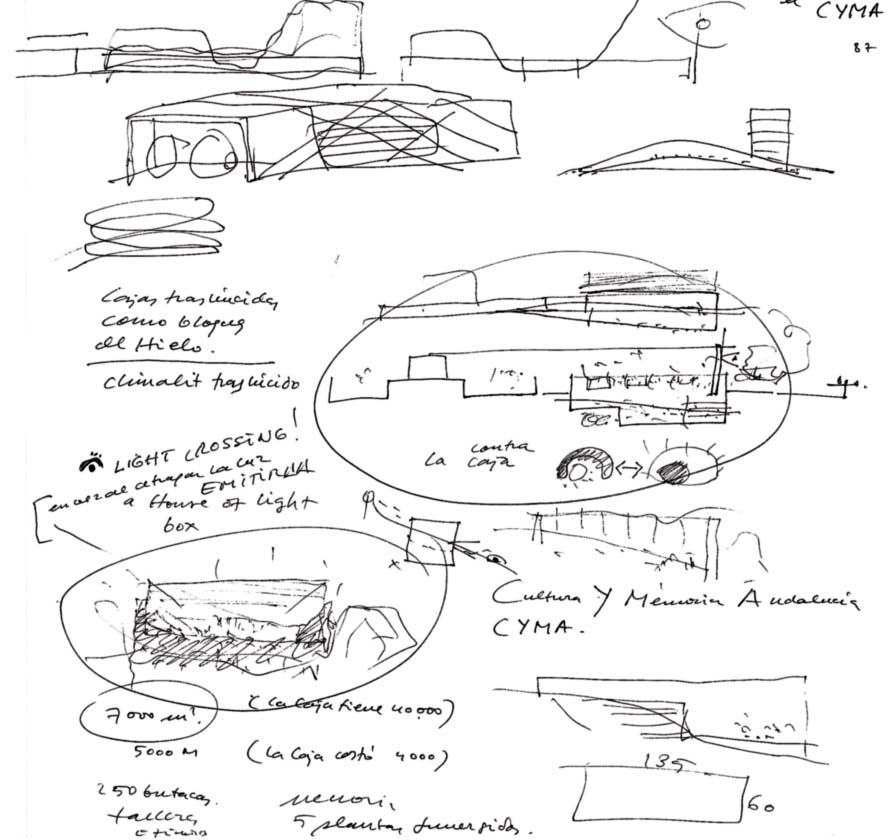 CYMA
87
Cajas traslucidas
como bloques
de Hielo.
climalit traslucido
LIGHT CROSSING!
en vez de atrapar la luz
EMITIRLA
a House of light
box
La contra
caja
Cultura Y Memoria Andalucia
CYMA.
7000 m².
(La Caja tiene 40.000)
5000 M
(La Caja costó 4000)
250 butacas.
talleres
memoria
5 plantas sumergidas.
135
60